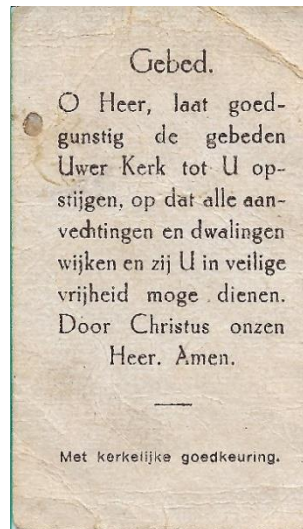 Gebed.
O Heer, laat goed-
gunstig de gebeden
Uwer Kerk tot U op-
stijgen, op dat alle aan-
vechtingen en dwalingen
wijken en zij U in veilige
vrijheid moge dienen.
Door Christus onzen
Heer. Amen.
Met kerkelijke goedkeuring.